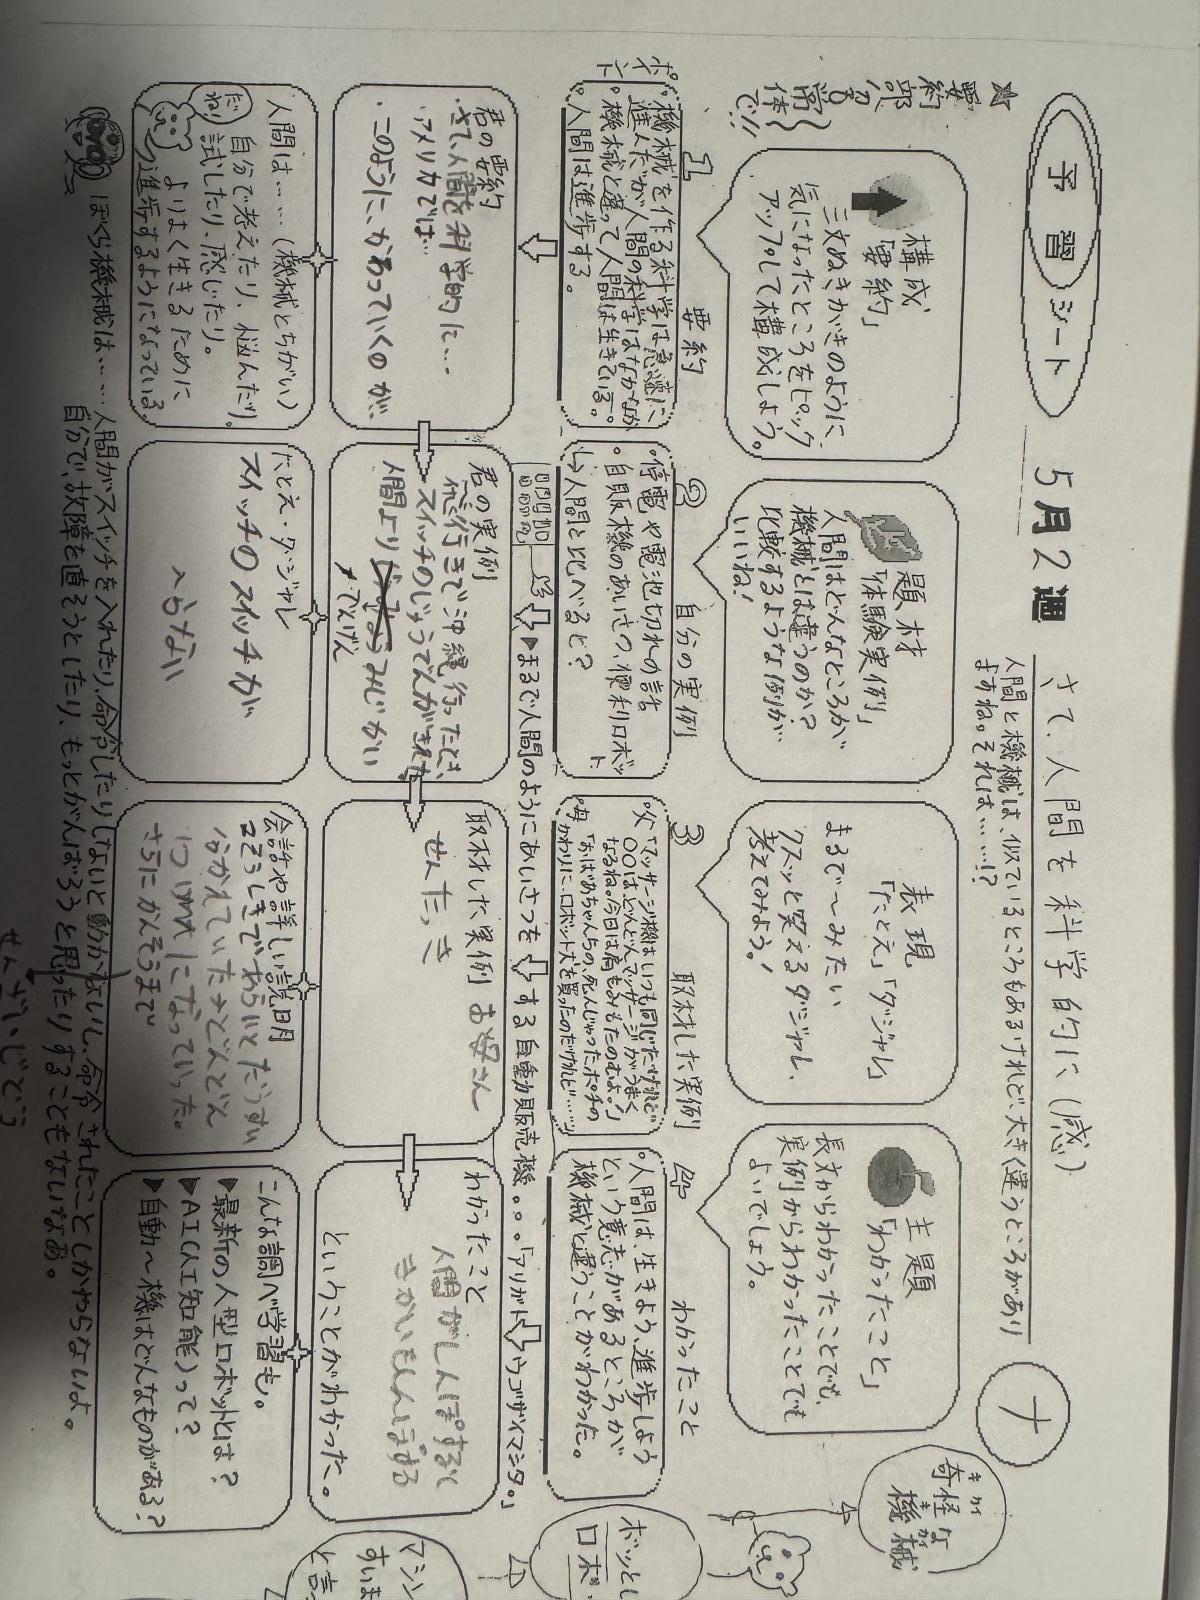 予習シート 5月2週
さて、人間を科学的に(感)
人間と機械は、似ているところもあるけれど、大きく違うところがあり
ますね。それは……!?
ナ
★要約部分常体で!!
構成
「要約」
三文ぬきがきのように、
気になったところをピック
アップして構成しよう。
題材
「体験実例」
人間はどんなところが
機械とは違うのか?
比較するような例が
いいね!
表現
「たとえ」「ダジャレ」
まるで〜みたい
クスッと笑えるダジャレ、
考えてみよう!
主題
「わかったこと」
長文からわかったことでも、
実例からわかったことでも
よいでしょう。
奇怪な
キカイ
機械
キカイ
1 要約
ポイント
。機械を作る科学は急速に
進んだが人間の科学はなかなか
。機械と違って人間は生きている。
。人間は進歩する。
2 自分の実例
。停電や電池切れの話
。自販機のあいさつ、便利ロボット
↳人間と比べると?
3 取材した実例
父「マッサージ機はいつも同じだけれど
〇〇はどんどんマッサージがうまく
なるね。今日は肩もみもたのむよ。」
母「おばあちゃんちの、死んじゃったポチの
かわりに、ロボット犬を買ったのだけれど……」
4 わかったこと
。人間は、生きよう、進歩しよう
という意志があるところが
機械と違うことがわかった。
▶まるで人間のようにあいさつをする自動販売機。。。「アリガトウゴザイマシタ。」
ボッとし
ロボ
君の要約
・さて、人間を科学的に…
・アメリカでは…
・このように、かわっていくのが、
君の実例
飛行きで沖縄行ったとき、
スイッチのじゅうでんがきれた
人間より
みじかい
でんげん
取材した実例 お母さん
せんたっき
わかったこと
人間がしんぽすると
きかいもしんぽする
ということがわかった。
マシン
すいま
と言
人間は……(機械とちがい)
自分で考えたり、悩んだり、
試したり、感じたり。
よりよく生きるために
進歩するようになっている。
だね
たとえ・ダジャレ
スイッチのスイッチが
へらない
会話や詳しい説明
2そうしきであらいとだっすい
分かれていた→どんどん
1つにになっていった。
さらにかんそうまで
こんな調べ学習も。
▶最新の人型ロボットとは?
▶AI(人工知能)って?
▶自動〜機はどんなものがある?
ぼくら機械は……人間がスイッチを入れたり、命令したりしないと動かないし、命令されたことしかやらないよ。
自分で、故障を直そうとしたり、もっとがんばろうと思ったりすることもないなあ。
せんざいじどう